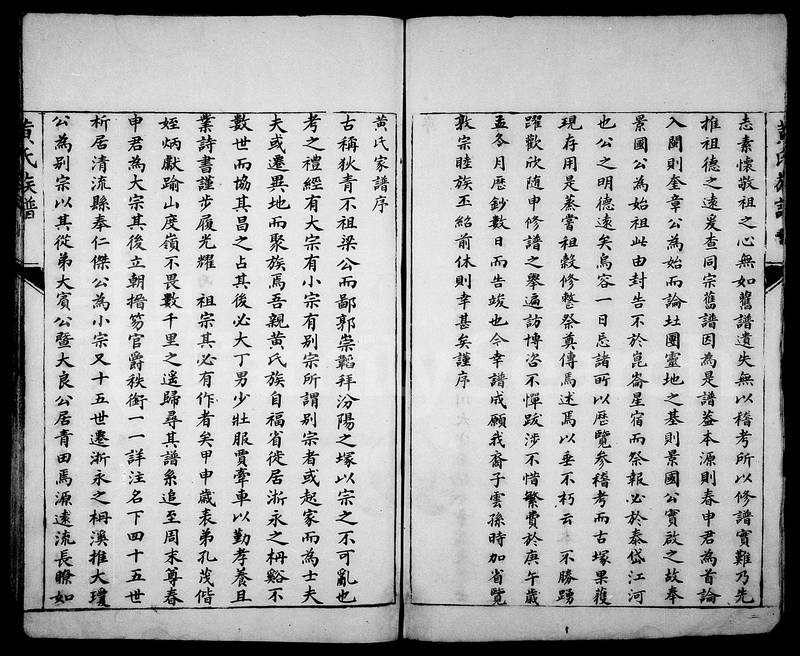 志素懷敬祖之心無如舊譜遺失無以稽考所以修譜實難乃先
推祖德之遠爰查同宗舊譜因為是譜蓋本源則春申君為首論
入閩則奎章公為始而論圵圑靈地之基則景國公實啟之故奉
景國公為始祖此由封告不於崑崙星宿而祭報必於泰岱江河
也公之明德遠矣烏容一日忌諸所以歷覽參稽考而古塚果獲
現存用是蒸嘗祖穀修整祭真傳焉述焉以垂不朽云 不勝踴
躍歡欣随申修譜之舉遍訪博咨不憚跋涉不惜繁費於庚午歲
孟冬月歷鈔數日而告竣也今幸譜成願我裔子雲孫時加省覽
敦宗睦族丕紹前休則幸甚矣謹序
黃氏族譜
黃氏家譜序
古稱狄青不祖梁公而鄙郭崇韜拜汾陽之塚以宗之不可亂也
考之禮經有大宗有小宗有別宗所謂別宗者或起家而為士夫
夫或遷異地而聚族焉吾親黃氏族自福省徙居浙永之枬谿不
數世而協其昌之占其後必大丁男少壯服賈牽車以勤孝養且
業詩書謹步履光耀 祖宗其必有作者矣甲申歲表弟孔茂偕
姪炳獻踰山度嶺不畏數千里之遥歸尋其譜系追至周末尊春
申君為大宗其後立朝搢笏官爵秩銜一一詳注名下四十五世
析居清流縣奉仁傑公為小宗又十五世遷浙永之枬澳推大瓊
公為別宗以其從弟大賓公暨大良公居青田焉源遠流長瞭如
黃氏族譜